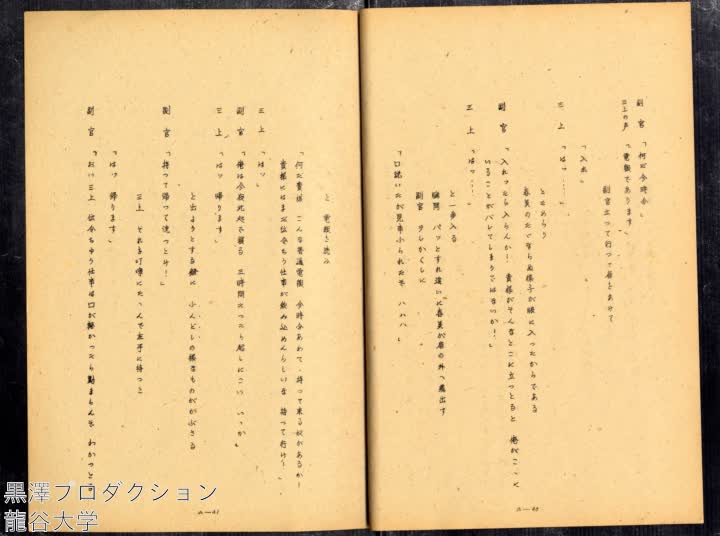 副官「何だ今時分」
三上の声「電報であります」
副官立って行って扉をあけて
「入れ」
三上「はッ……」
とためらう
春美のたゞならぬ様子が眼に入ったからである
副官「入れったら入らんか! 貴様がそんなとこに立つとると 俺がこゝに
いることがバレてしまうではないか!」
三上「はッ……」
と一歩入る
瞬間 パッとすれ違いに春美が扉の外へ飛出す
副官 テレかくしに
「口説いたが見事ふられたぞ ハハハ」
2—40
と 電報を読み
「何だ貴様 こんな普通電報 今時分あわてゝ持って来る奴があるか!
貴様にはまだ伝令ちう仕事が飲み込めんらしいな 持って行け!」
三上「はッ」
副官「俺は今夜此処で寝る 三時間たったら起しにこい いゝか」
三上「はッ 帰ります」
と出ようとする顔に ふんどしの様なものがかぶさる
副官「持って帰って洗っとけ!」
三上 それを叮嚀にたゝんで左手に持つと
「はッ 帰ります」
副官「おい三上 伝令ちゆう仕事は口が軽かったら勤まらんぞ わかつとる
2—41
黒澤プロダクション
龍谷大学